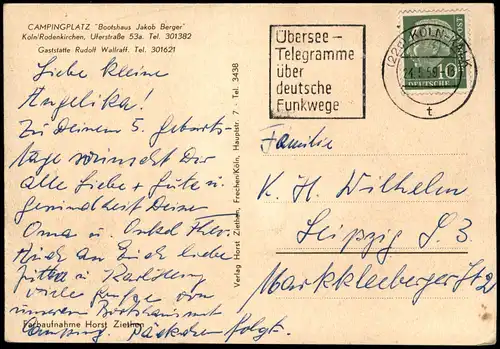 CAMPINGPLATZ "Bootshaus Jakob Berger"
Köln/Rodenkirchen, Uferstraße 53a. Tel. 301382
Gaststätte Rudolf Wallraff. Tel. 301621
Liebe kleine
Angelika!
Zu Deinem 5. Geburts-
tage wünscht Dir
alle Liebe + Gute u.
Gesundheit Deine
Oma u. Onkel
Auch an Euch liebe
u.
viele Grüße von
unserem Bootshaus mit
Camping. Päckchen folgt.
Farbaufnahme Horst Ziethen
Verlag Horst Ziethen, Frechen/Köln, Hauptstr. 7 - Tel. 3438
Übersee-
Telegramme
über
deutsche
Funkwege
(22c) KÖLN
t
10
DEUTSCHE
Familie
K. H. Wilhelm
Leipzig S. 3
Markkleeberger Str 2